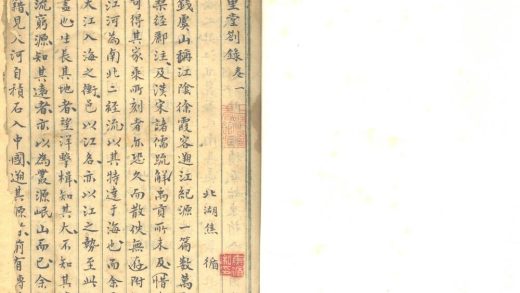 里堂别錄卷一
北湖焦循
錢虞山稱江陰徐霞客遡江紀源一篇數萬
桑經酈注及漢宋諸儒疏解禹貢所未及惜
可得其家乘所刻者亦恐久而散佚無附
江河為南北二經流以其特達于海也而余
大江入海之衝邑以江名亦以江之勢至此
盡也生長其地者望洋擊楫知其大不知其
流窮源知其遠者亦以為發源岷山而已余
籍見大河自積石入中國遡其源前有